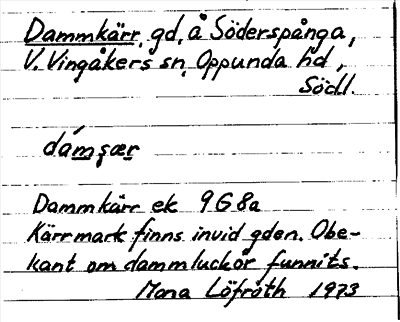 Dammkärr, gd, å Söderspånga,
V. Vingåkers sn, Oppunda hd,
Södl.
dámçær
Dammkärr ek 9G8a
Kärrmark finns invid gden. Obe-
kant om dammluckor funnits.
Mona Löfroth 1973